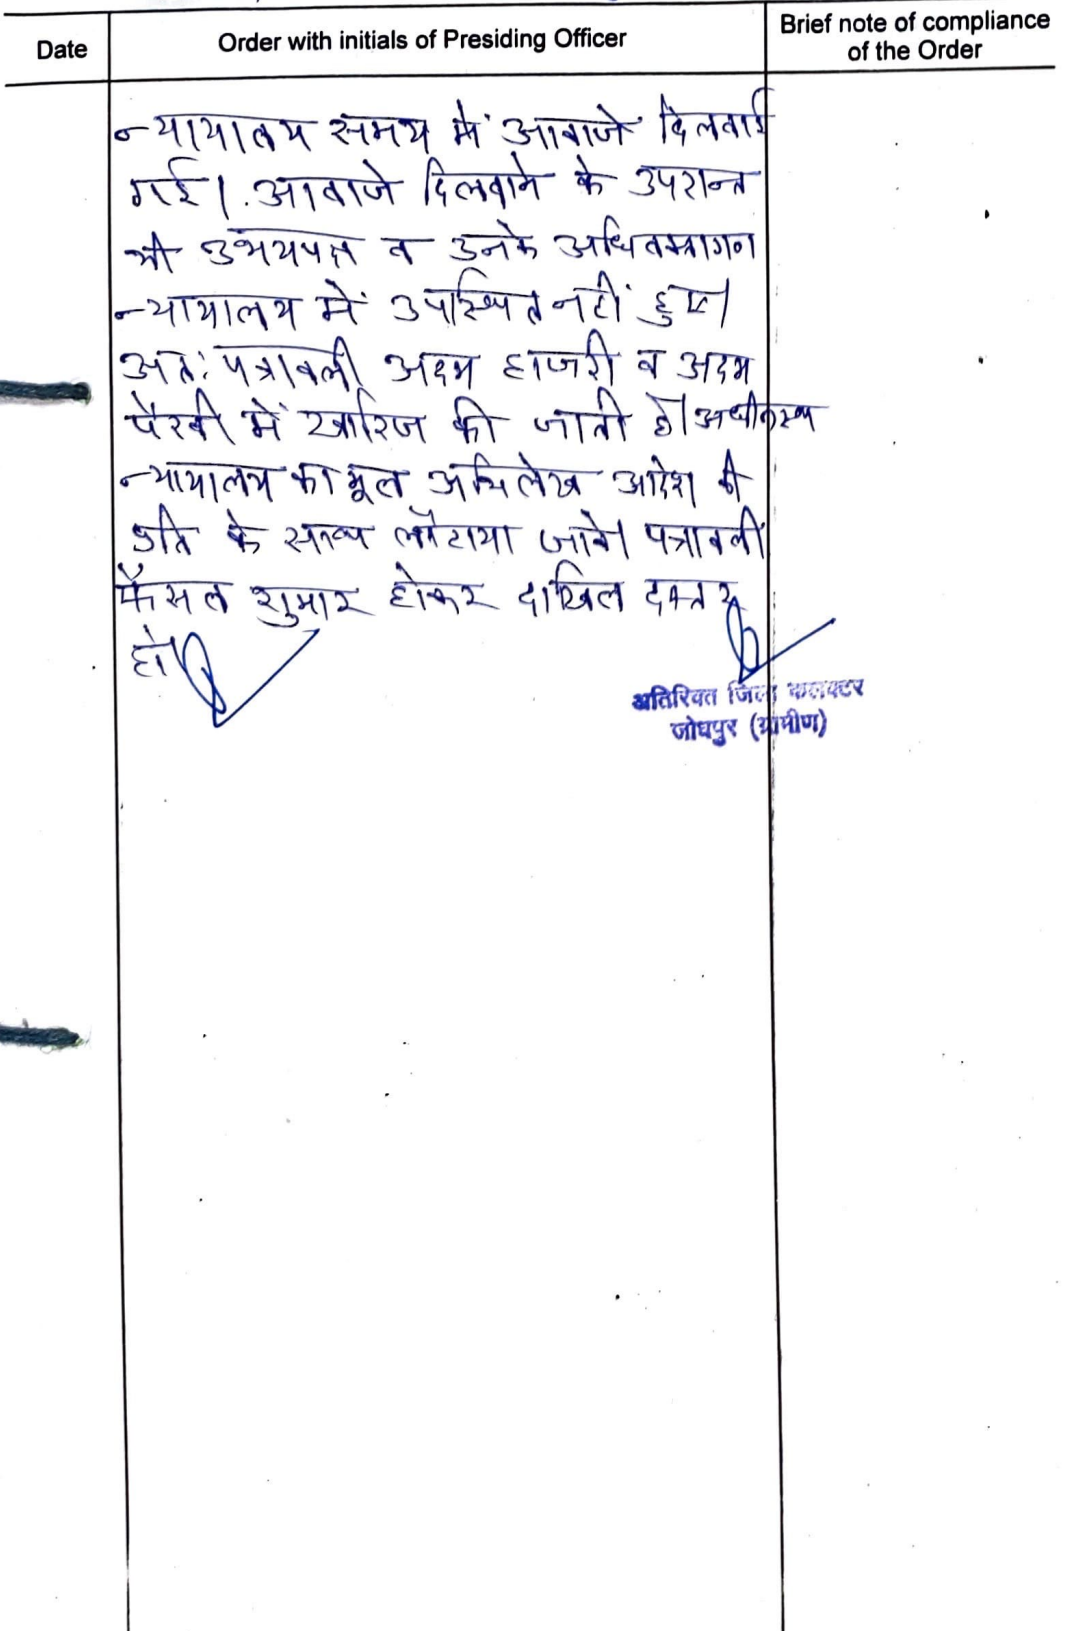 Date
Order with initials of Presiding Officer
Brief note of compliance
of the Order
न्यायालय समय में आवाजे दिलवाई
गई। आवाजे दिलवाने के उपरान्त
भी उभयपक्ष व उनके अधिवक्तागण
न्यायालय में उपस्थित नहीं हुए।
अतः पत्रावली अदम हाजरी व अदम
पैरवी में खारिज की जाती है। अधीनस्थ
न्यायालय का मूल अभिलेख आदेश की
प्रति के साथ लौटाया जावे। पत्रावली
फैसल शुमार होकर दाखिल दफ्तर
हो।
अतिरिक्त जिला कलक्टर
जोधपुर (ग्रामीण)